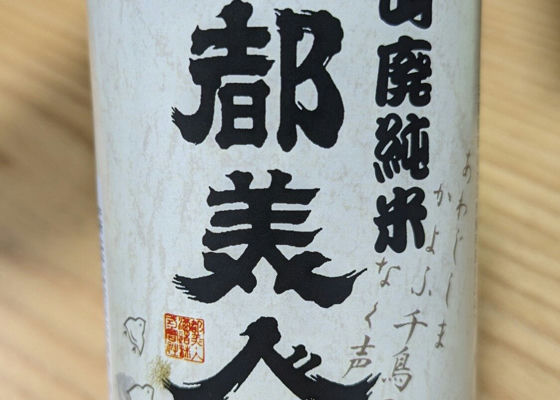 山廃純米
都美人
あわじしま
かよふ千鳥
なく声